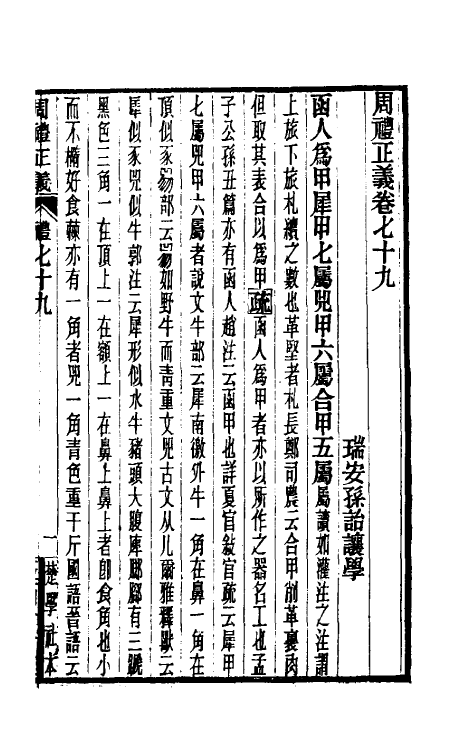 周禮正義卷七十九
瑞安孫詒讓學
函人爲甲犀甲七屬兕甲六屬合甲五屬屬讀如灌注之注謂
上旅下旅札續之數也革堅者札長鄭司農云合甲削革裏肉
但取其表合以爲甲疏函人爲甲者亦以所作之器名工也孟
子公孫丑篇亦有函人趙注云函甲也詳夏官敘官疏云犀甲
七屬兕甲六屬者說文牛部云犀南徼外牛一角在鼻一角在
頂似豕𤉡部云𤉡如野牛而青重文兕古文从儿爾雅釋獸云
犀似豕兕似牛郭注云犀形似水牛豬頭大腹庳腳腳有三蹏
黑色三角一在頂上一在額上一在鼻上鼻上者卽食角也小
而不橢好食棘亦有一角者兕一角青色重千斤國語晉語云
周禮正義 禮七十九
一 楚學社本